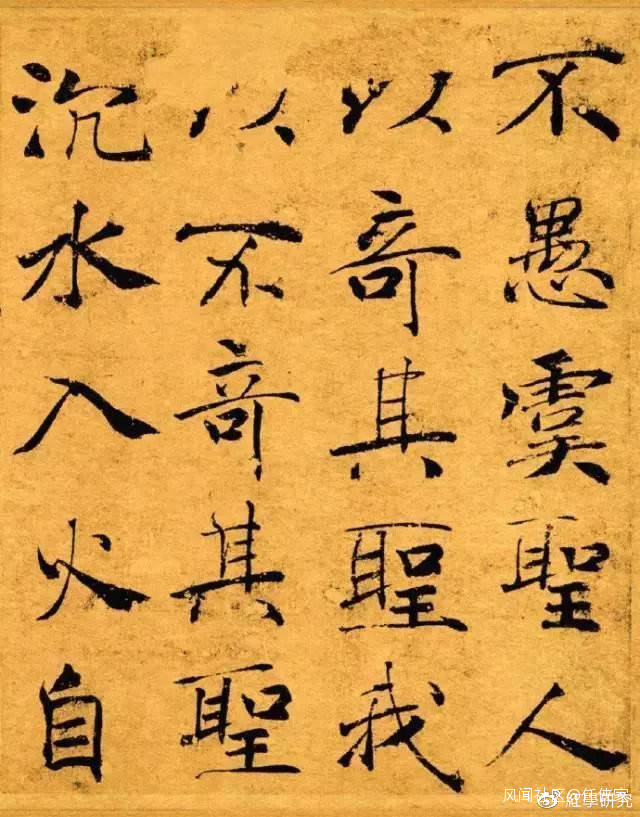 不愚虞聖人
以竒其聖我
以不竒其聖
沉水入火自
风闻社区
紅學研究